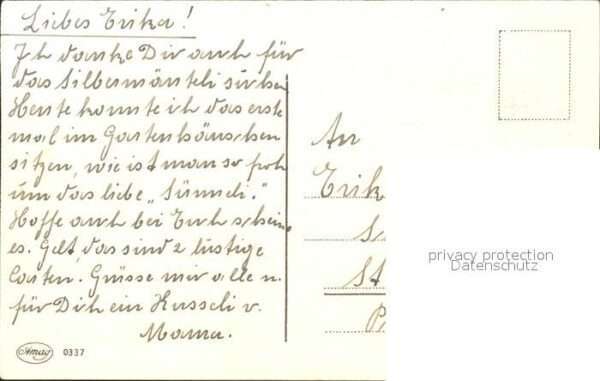 Liebes Erika!
Ich danke Dir auch für
das Silbermänteli suchen
Heute konnte ich das erste
mal im Gartenhäuschen
sitzen, wie ist man so froh
um das liebe „Sünneli."
Hoffe auch bei Euch schein
es. Gelt, das sind 2 lustige
Carten. Grüsse mir alle u.
für Dich ein Kusseli v.
Mama.
An
Erik
S
St
P
privacy protection
Datenschutz
Amag 0337